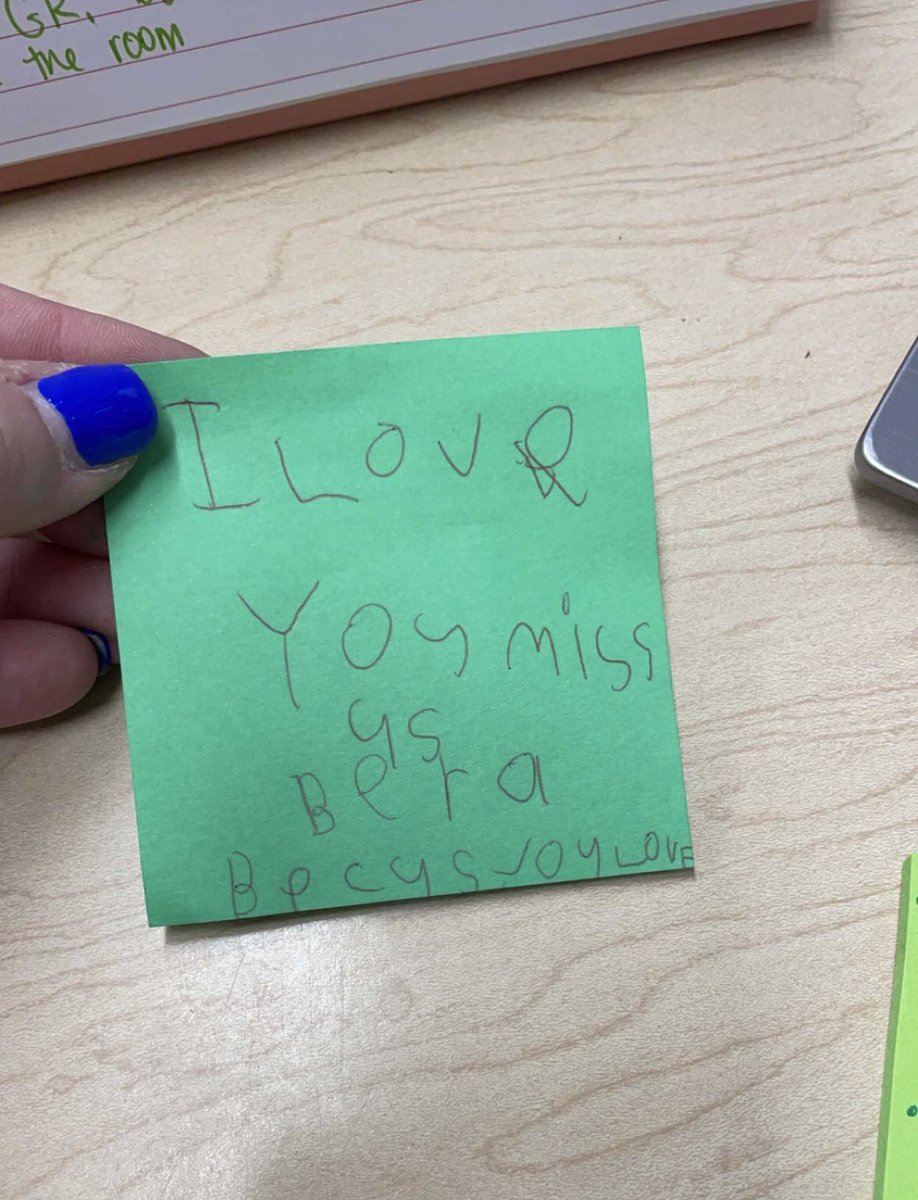 GR,
the room
I LOVE
YOU miss
us
Bera
Becus YOU LOVE